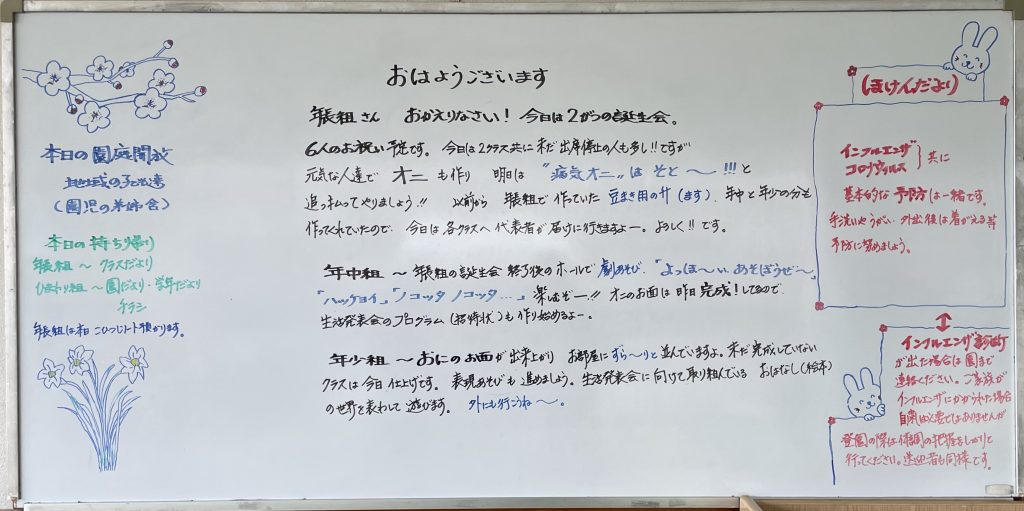 本日の園庭開放
地域の子ども達
(園児の弟姉含)
本日の持ち帰り
年長組〜クラスだより
ひまわり組〜園だより・学年だより
チラシ
年長組は本日こひつじノート預かります。
おはようございます
年長組さん おかえりなさい! 今日は2がつの誕生会。
6人のお祝い予定です。 今日は2クラス共に未だ出席停止の人も多し!!ですが
元気な人達で オニ も作り 明日は "病気オニ"は そと〜〜!!!と
追っ払ってやりましょう!! 以前から 年長組で作っていた 豆まき用の升(ます)、年中と年少の分も
作ってくれていたので、今日は各クラスへ代表者が届けに行きますよー。よろしく!!です。
年中組 〜 年長組の誕生会 終了後のホールで劇あそび、「よっほ〜い あそぼうぜ〜」
「ハッケヨイ」「ノコッタ ノコッタ…」 楽しむぞー!! オニのお面は昨日完成!してるので、
生活発表会のプログラム(招待状)も作り始めるよー。
年少組 〜 おにのお面が出来上がり お部屋にずら〜りと並んでいますよ。未だ完成していない
クラスは今日仕上げです。 表現あそびも進めましょう。生活発表会に向けて取り組んでいる おはなし(絵本)
の世界を表わして 遊びます。 外にも行こうね〜。
ほけんだより
インフルエンザ
コロナウィルス }共に
基本的な予防は一緒です。
手洗いやうがい、外出後は着がえる等
予防に努めましょう。
インフルエンザ診断
が出た場合は園まで
連絡ください。ご家族が
インフルエンザにかかられた場合
自粛は必要ではありませんが
登園の際は体調の把握をしっかりと
行ってください。送迎者も同様です。